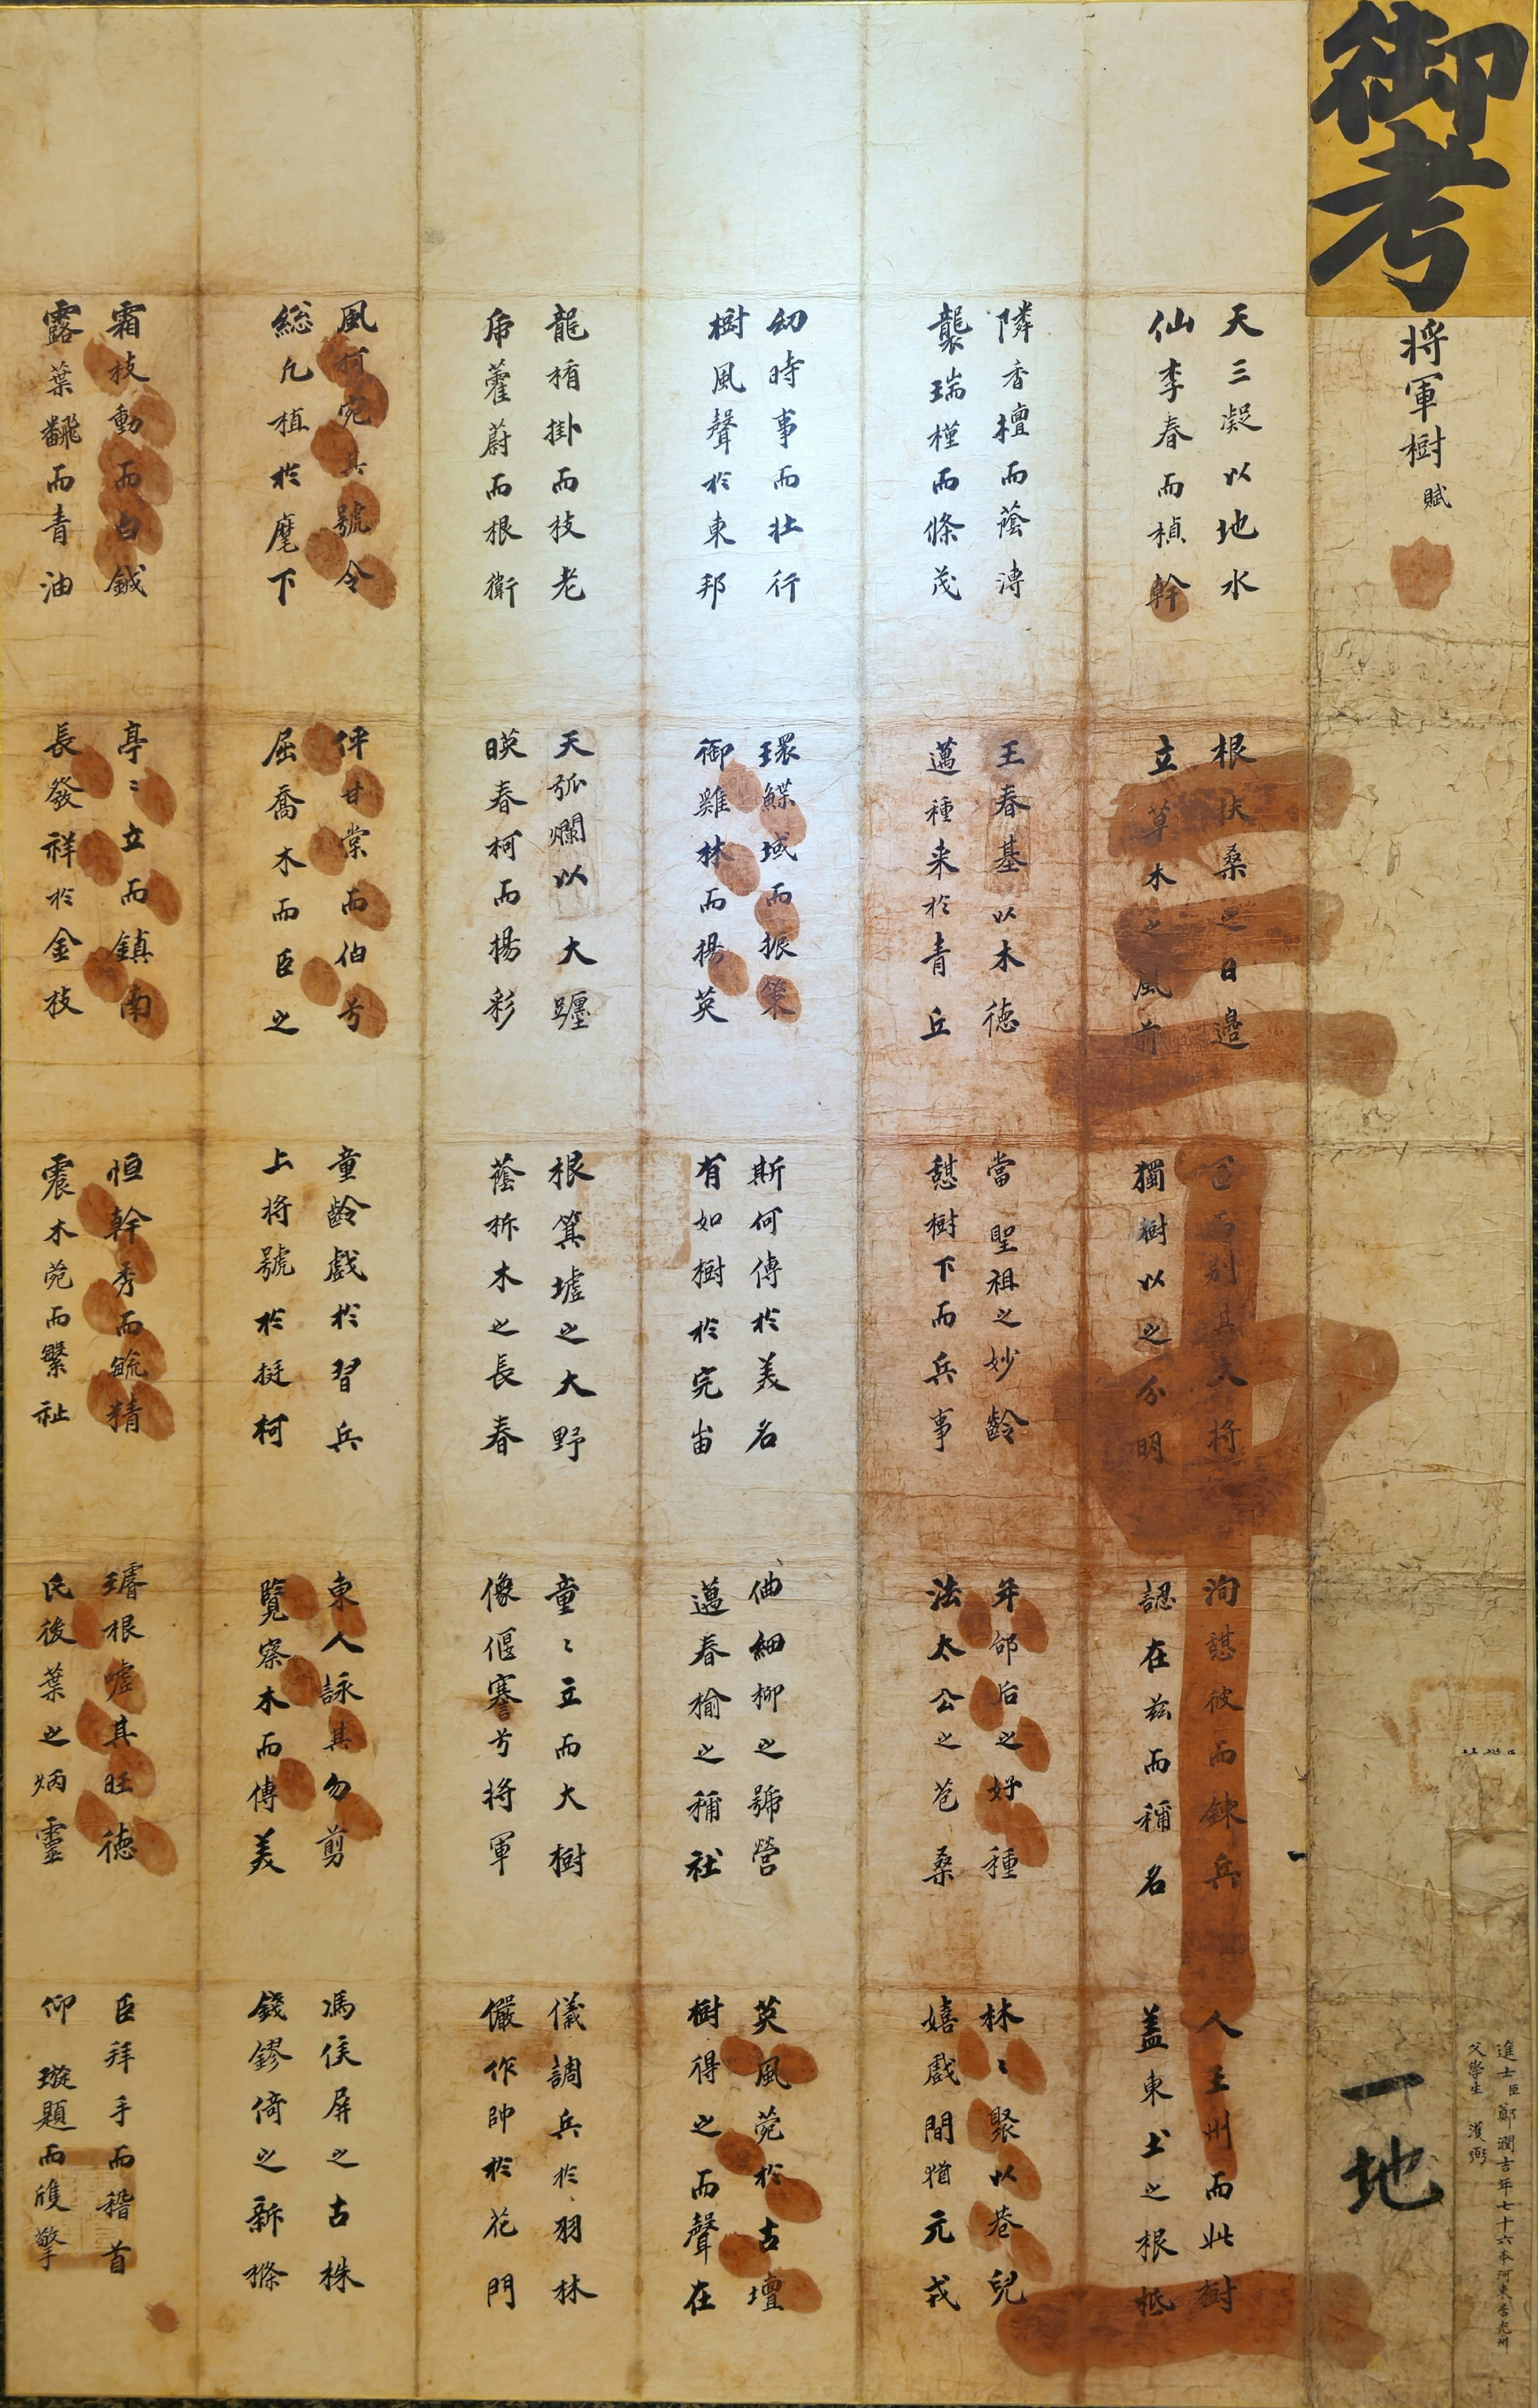 御考
将軍樹賦
進士臣鄭潤吉年七十六本河東居光州
父學生 漢弼
一地
三中
天三凝以地水
仙李春而楨幹
隣香檀而蔭漙
襲瑞槿而條茂
幼時事而壮行
樹風聲於東邦
龍楯掛而枝老
虎藿蔚而根衛
風柯宛其號令
総凢植於麾下
霜枝動而白鉞
露葉飜而青油
根扶桑之日邊
立草木之風前
王春基以木德
邁種来於青丘
環鰈域而振策
御雞林而揚英
天弧爛以大躔
暎春柯而揚彩
伻甘棠而伯兮
屈喬木而臣之
亭〻立而鎮南
長發祥於金枝
而别其大将
獨樹以之分明
當聖祖之妙齡
憇樹下而兵事
斯何傳於美名
有如樹於完甾
根箕墟之大野
蔭柝木之長春
童齡戲於習兵
上将號於挺柯
恒幹秀而毓精
震木菀而繁祉
洵憇彼而鍊兵
認在玆而稱名
年邰后之好種
法太公之苞桑
細柳之號營
邁春楡之稱社
童〻立而大樹
像偃蹇兮将軍
東人詠其勿剪
覽察木而傳美
璿根噓其旺德
氏後葉之炳靈
人王州而此樹
蓋東土之根柢
林〻聚以巷兒
嬉戲間猶元戎
英風菀於古壇
樹得之而聲在
儀調兵於羽林
儼作帥於花門
馮侯屏之古株
錢鏐倚之新條
臣拜手而稽首
仰璇題而雙擎